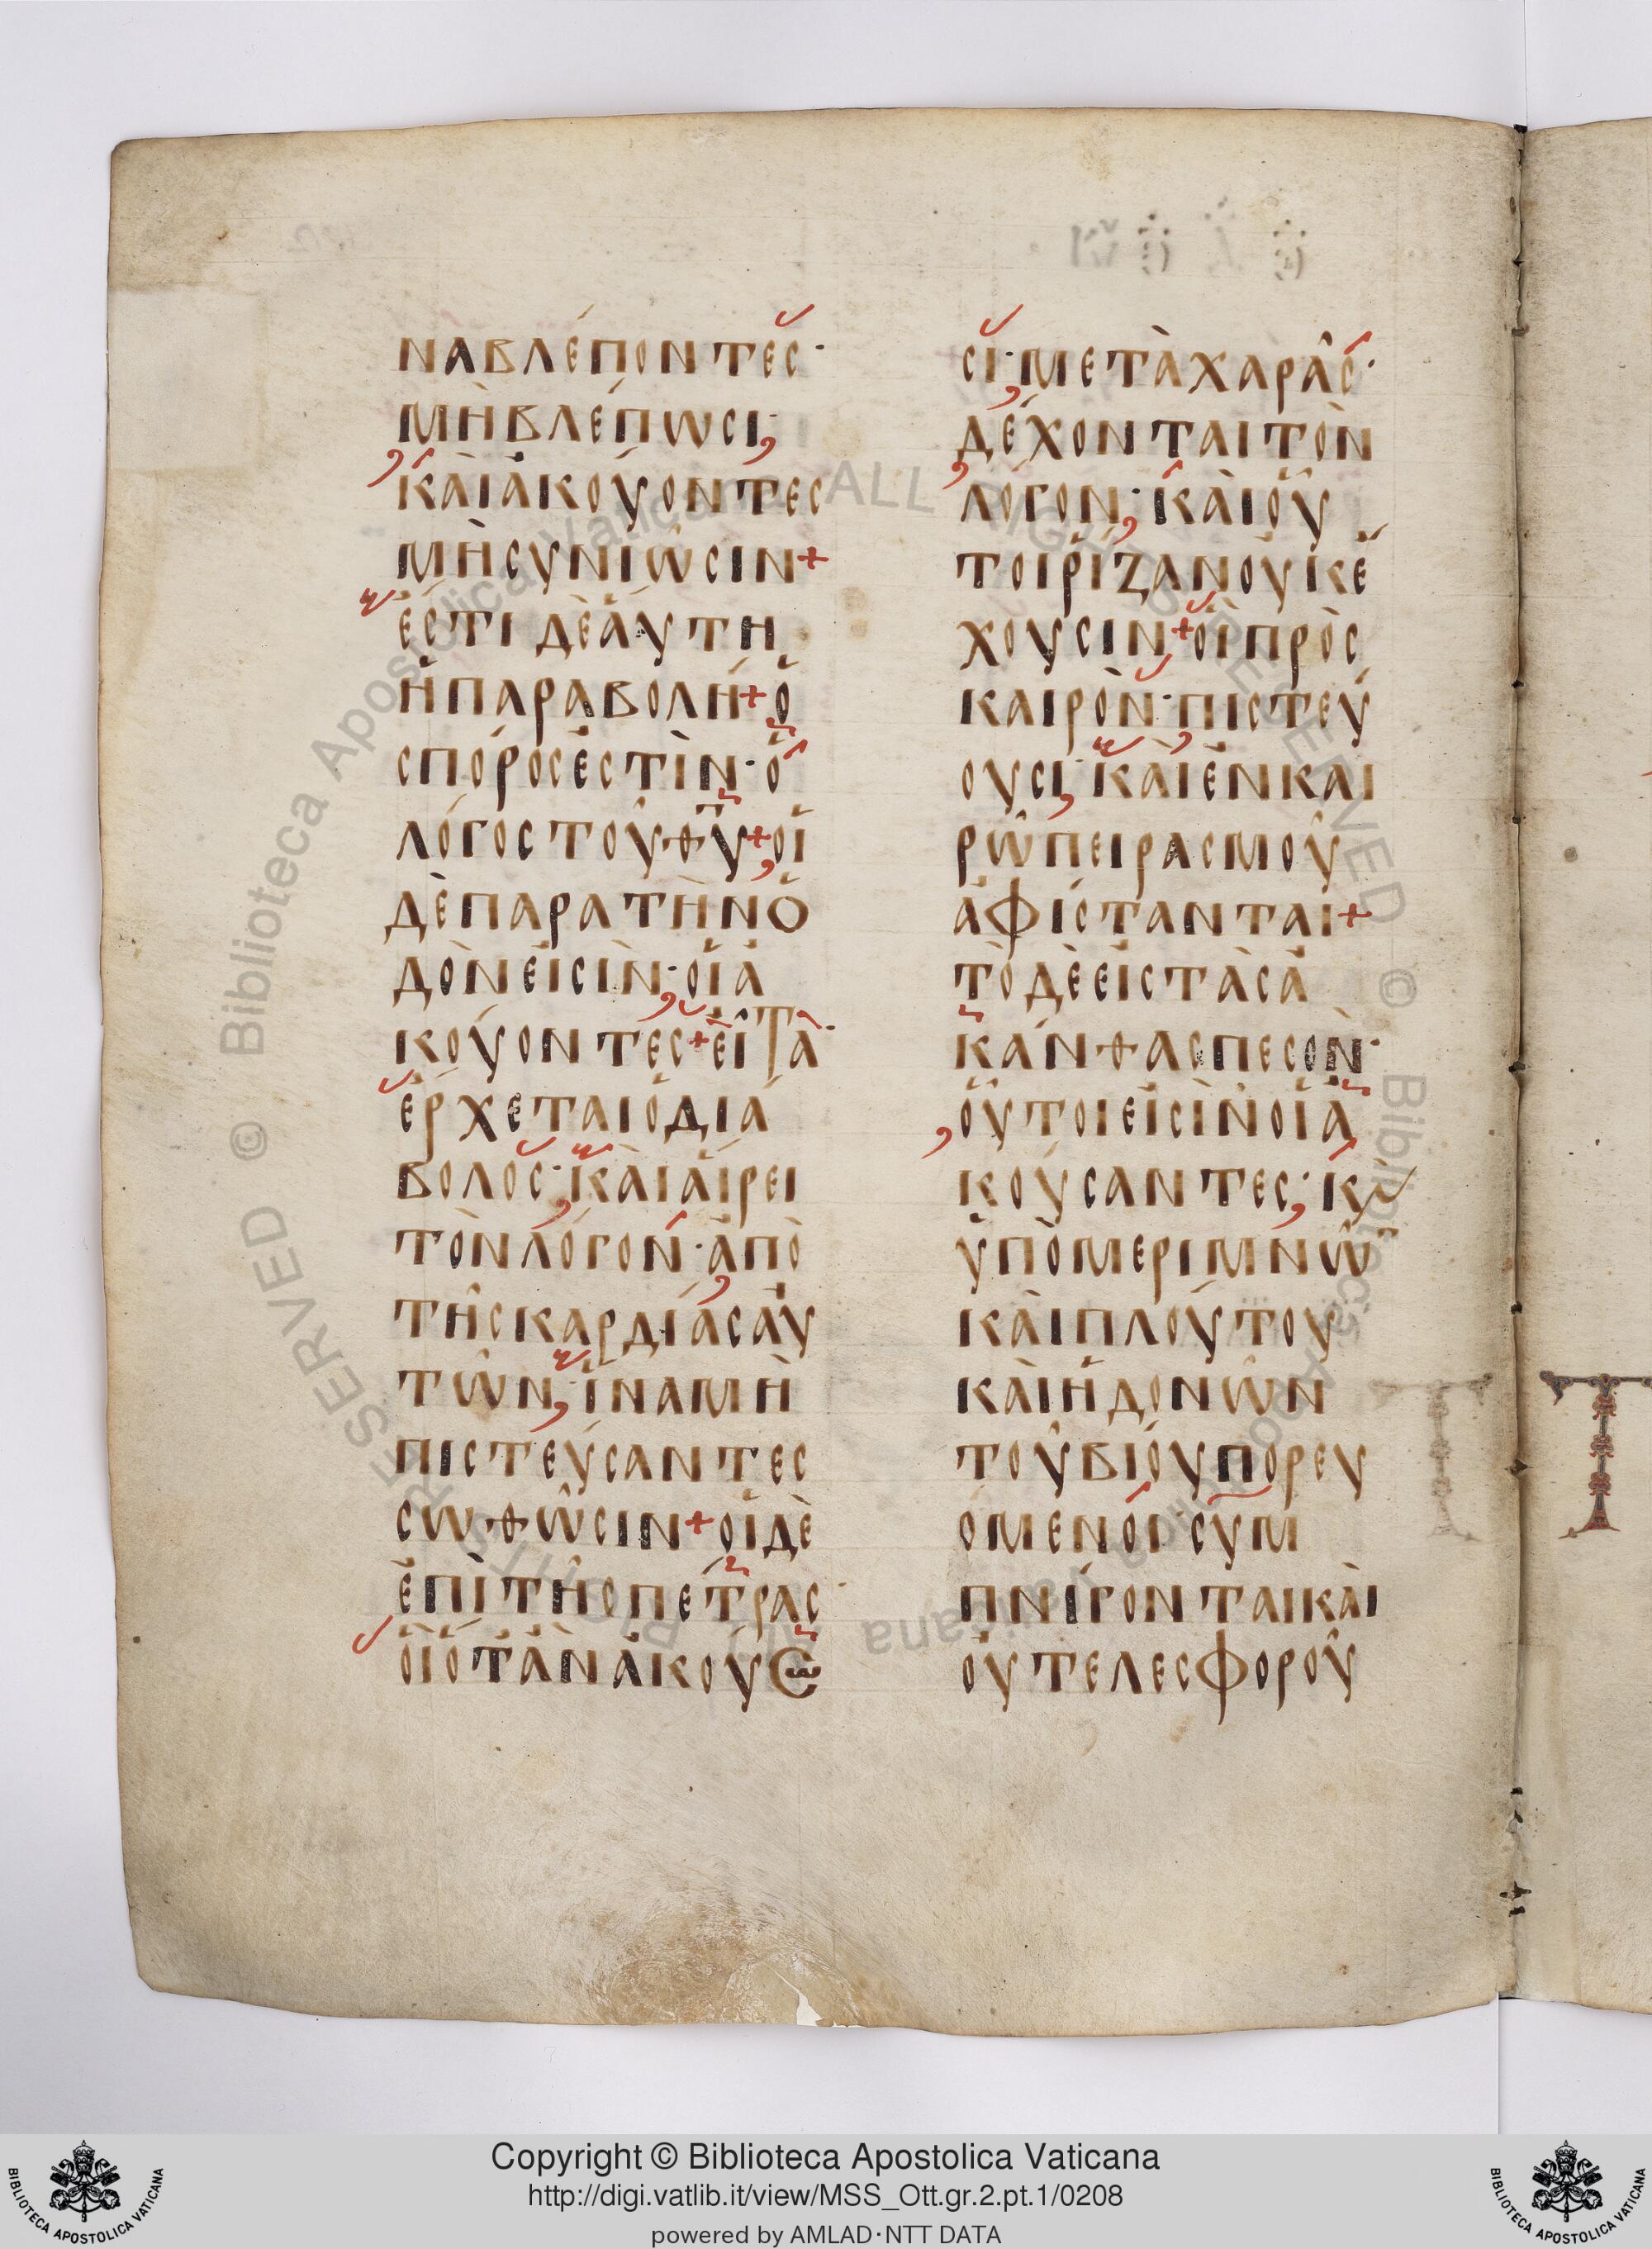 ΝΑΒΛΈΠΟΝΤΕΣ·
ΜῊΒΛΈΠΩΣΙ·
ΚᾺΙἈΚΟΎΟΝΤΕΣ
ΜῊΣΥΝΙΩ͂ΣΙΝ+
ἜΣΤΙΔῈἈΎΤΗ
ἩΠΑΡΑΒΟΛΉ+Ὁ
ΣΠΌΡΟΣἘΣΤῚΝ·Ὁ
ΛΌΓΟΣΤΟΥ͂Θ̅Υ̅+ΟἹ
ΔῈΠΑΡΑΤῊΝὉ
ΔῸΝΕἸΣῚΝ·ΟἹἈ
ΚΟΎΟΝΤΕΣ+ΕἾΤΑ·
ἜΡΧΕΤΑΙὉΔΙΆ
ΒΟΛΟΣ·ΚᾺΙΑἼΡΕΙ
ΤῸΝΛΌΓΟΝ·ἈΠῸ
ΤΗ͂ΣΚΑΡΔΊΑΣΑΥ̓
ΤΩ͂Ν·ἽΝΑΜῊ
ΠΙΣΤΕΎΣΑΝΤΕΣ
ΣΩΘΩ͂ΣΙΝ+ΟἹΔῈ
ἘΠῚΤΗ͂ΣΠΈΤΡΑΣ·
ΟἻὍΤΑΝἈΚΟΎΣΩ
ΣΙ·ΜΕΤᾺΧΑΡΑ͂Σ·
ΔΈΧΟΝΤΑΙΤῸΝ
ΛΌΓΟΝ·ΚᾺΙΟὟ
ΤΟΙΡΊΖΑΝΟΥ̓ΚἜ
ΧΟΥΣΙΝ+ΟἻΠΡῸΣ
ΚΑΙΡῸΝ·ΠΙΣΤΕΎ
ΟΥΣΙ·ΚᾺΙἘΝΚΑΙ
ΡΩ͂ΠΕΙΡΑΣΜΟΥ͂
ἈΦΊΣΤΑΝΤΑΙ+
ΤῸΔῈΕἸΣΤᾺΣἈ
ΚΆΝΘΑΣΠΕΣῸΝ·
ΟὟΤΟΙΕἸΣῚΝΟἹἈ
ΚΟΎΣΑΝΤΕΣ·Κϗ
ὙΠῸΜΕΡΙΜΝΩ͂
ΚᾺΙΠΛΟΎΤΟΥ
ΚᾺΙἩΔΟΝΩ͂Ν
ΤΟΥ͂ΒΊΟΥΠΟΡΕΥ
ΌΜΕΝΟΙ·ΣΥΜ
ΠΝΊΓΟΝΤΑΙΚᾺΙ
ΟΥ̓ΤΕΛΕΣΦΟΡΟΥ͂
Copyright © Biblioteca Apostolica Vaticana
http://digi.vatlib.it/view/MSS_Ott.gr.2.pt.1/0208
powered by AMLAD·NTT DATA
BIBLIOTECA APOSTOLICA VATICANA
BIBLIOTECA APOSTOLICA VATICANA